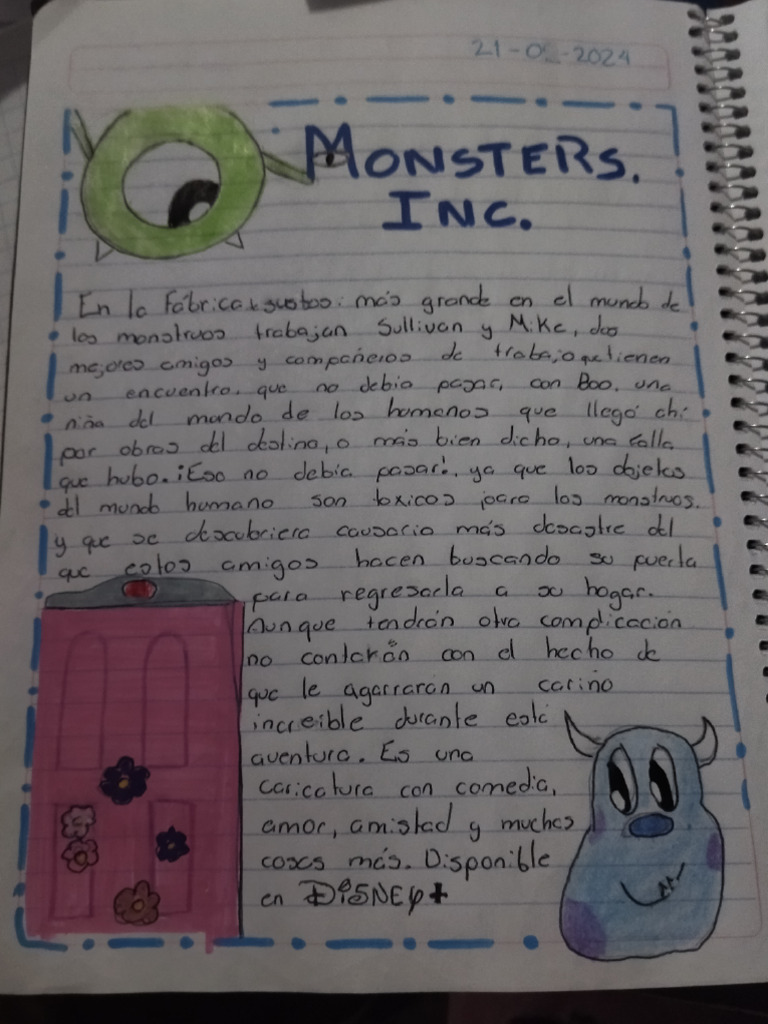 21-0 -2024
MONSTERS.
INC.
En la Fábrica sustos más grande en el mundo de
los monstruos trabajan Sullivan y Mike, dos
mejores amigos y compañeros de trabajo que tienen
un encuentro, que no debio pasar, con Boo, una
niña del mundo de los humanos que llegó ahi
por obras del destino, o más bien dicho, una falla
que hubo. ¡Eso no debia pasar!, ya que los objetos
del mundo humano son toxicos para los monstruos.
y que se descubriera causaria más desastre del
que estos amigos hacen buscando su puerta
para regresarla a su hogar.
Aunque tendrán otra complicación
no contarán con el hecho de
que le agarraran un cariño
increible durante esta
aventura. Es una
caricatura con comedia,
amor, amistad y muchas
cosas más. Disponible
en DISNEY+